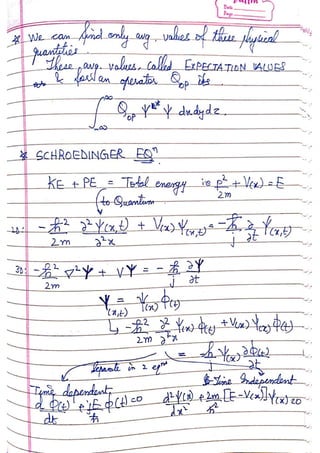 Date
Page
* We can find only avg. values of these physical
quantities.
These avg. values, called EXPECTATION VALUES
& for an operator Qop its
∫_{-∞}^{∞} Qop ψ* ψ dx dy dz.
* SCHROEDINGER EQⁿ
KE + PE = Total energy ie p²/2m + V(x) = E
(to Quantum
-ħ²/2m ∂²Ψ(x,t)/∂²x + V(x) Ψ(x,t) = -ħ/j ∂/∂t Ψ(x,t)
3D: -ħ²/2m ∇²Ψ + VΨ = -ħ/j ∂Ψ/∂t
Ψ(x,t) = Ψ(x) ϕ(t)
↳ -ħ²/2m ∂²/∂²x Ψ(x) ϕ(t) + V(x) Ψ(x) ϕ(t)
= -ħ/j Ψ(x) ∂ϕ(t)/∂t
Separate in 2 eqⁿˢ
Time dependent, Time Independent
d ϕ(t)/dt + jE/ħ ϕ(t) = 0 d²Ψ(x)/dx² + 2m/ħ² [E - V(x)] Ψ(x) = 0